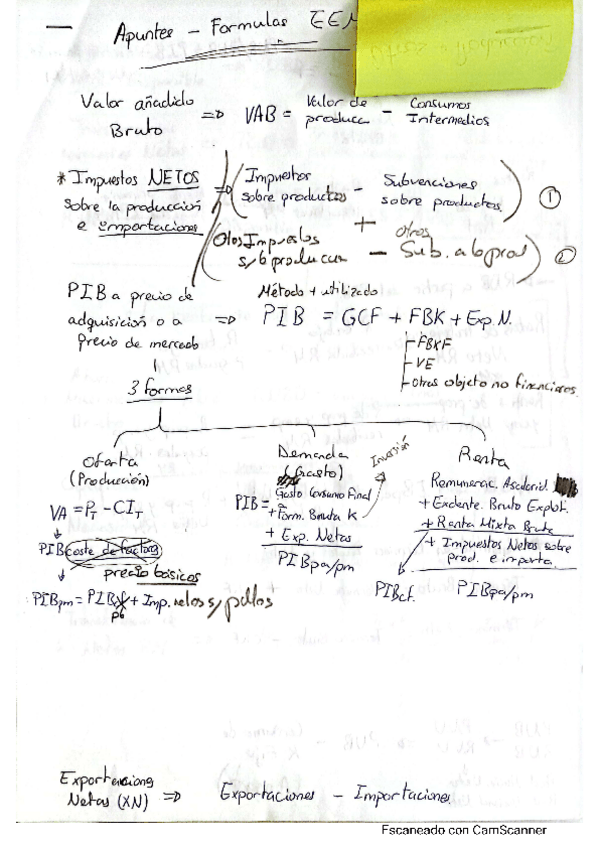 Apuntes - Formulas EEM
Valor añadido Bruto => VAB = Valor de producc. - Consumos Intermedios
* Impuestos NETOS sobre la producción e importaciones => (Impuestos sobre productos - Subvenciones sobre productos) ①
+
(Otros Impuestos s/ producción - Otros Sub. a la prod) ②
PIB a precio de adquisición o a precio de mercado => Método + utilizado
PIB = GCF + FBK + Exp. N.
- FBKF
- VE
- Otros objeto no financieros.
3 formas
Oferta (Producción)
VA = PT - CIT
PIB coste de factores
precio básicos
PIBpm = PIBcf + Imp. netos s/ pdtos
pb
Demanda (Gasto)
Inversión
PIB = Gasto Consumo Final
+ Form. Bruta K
+ Exp. Netas
PIBpa/pm
Renta
Remunerac. Asalariad.
+ Excdente. Bruto Explot.
+ Renta Mixta Bruta
+ Impuestos Netos sobre prod. e importa.
PIBcf. PIBpa/pm
Exportaciones Netas (XN) => Exportaciones - Importaciones
Escaneado con CamScanner